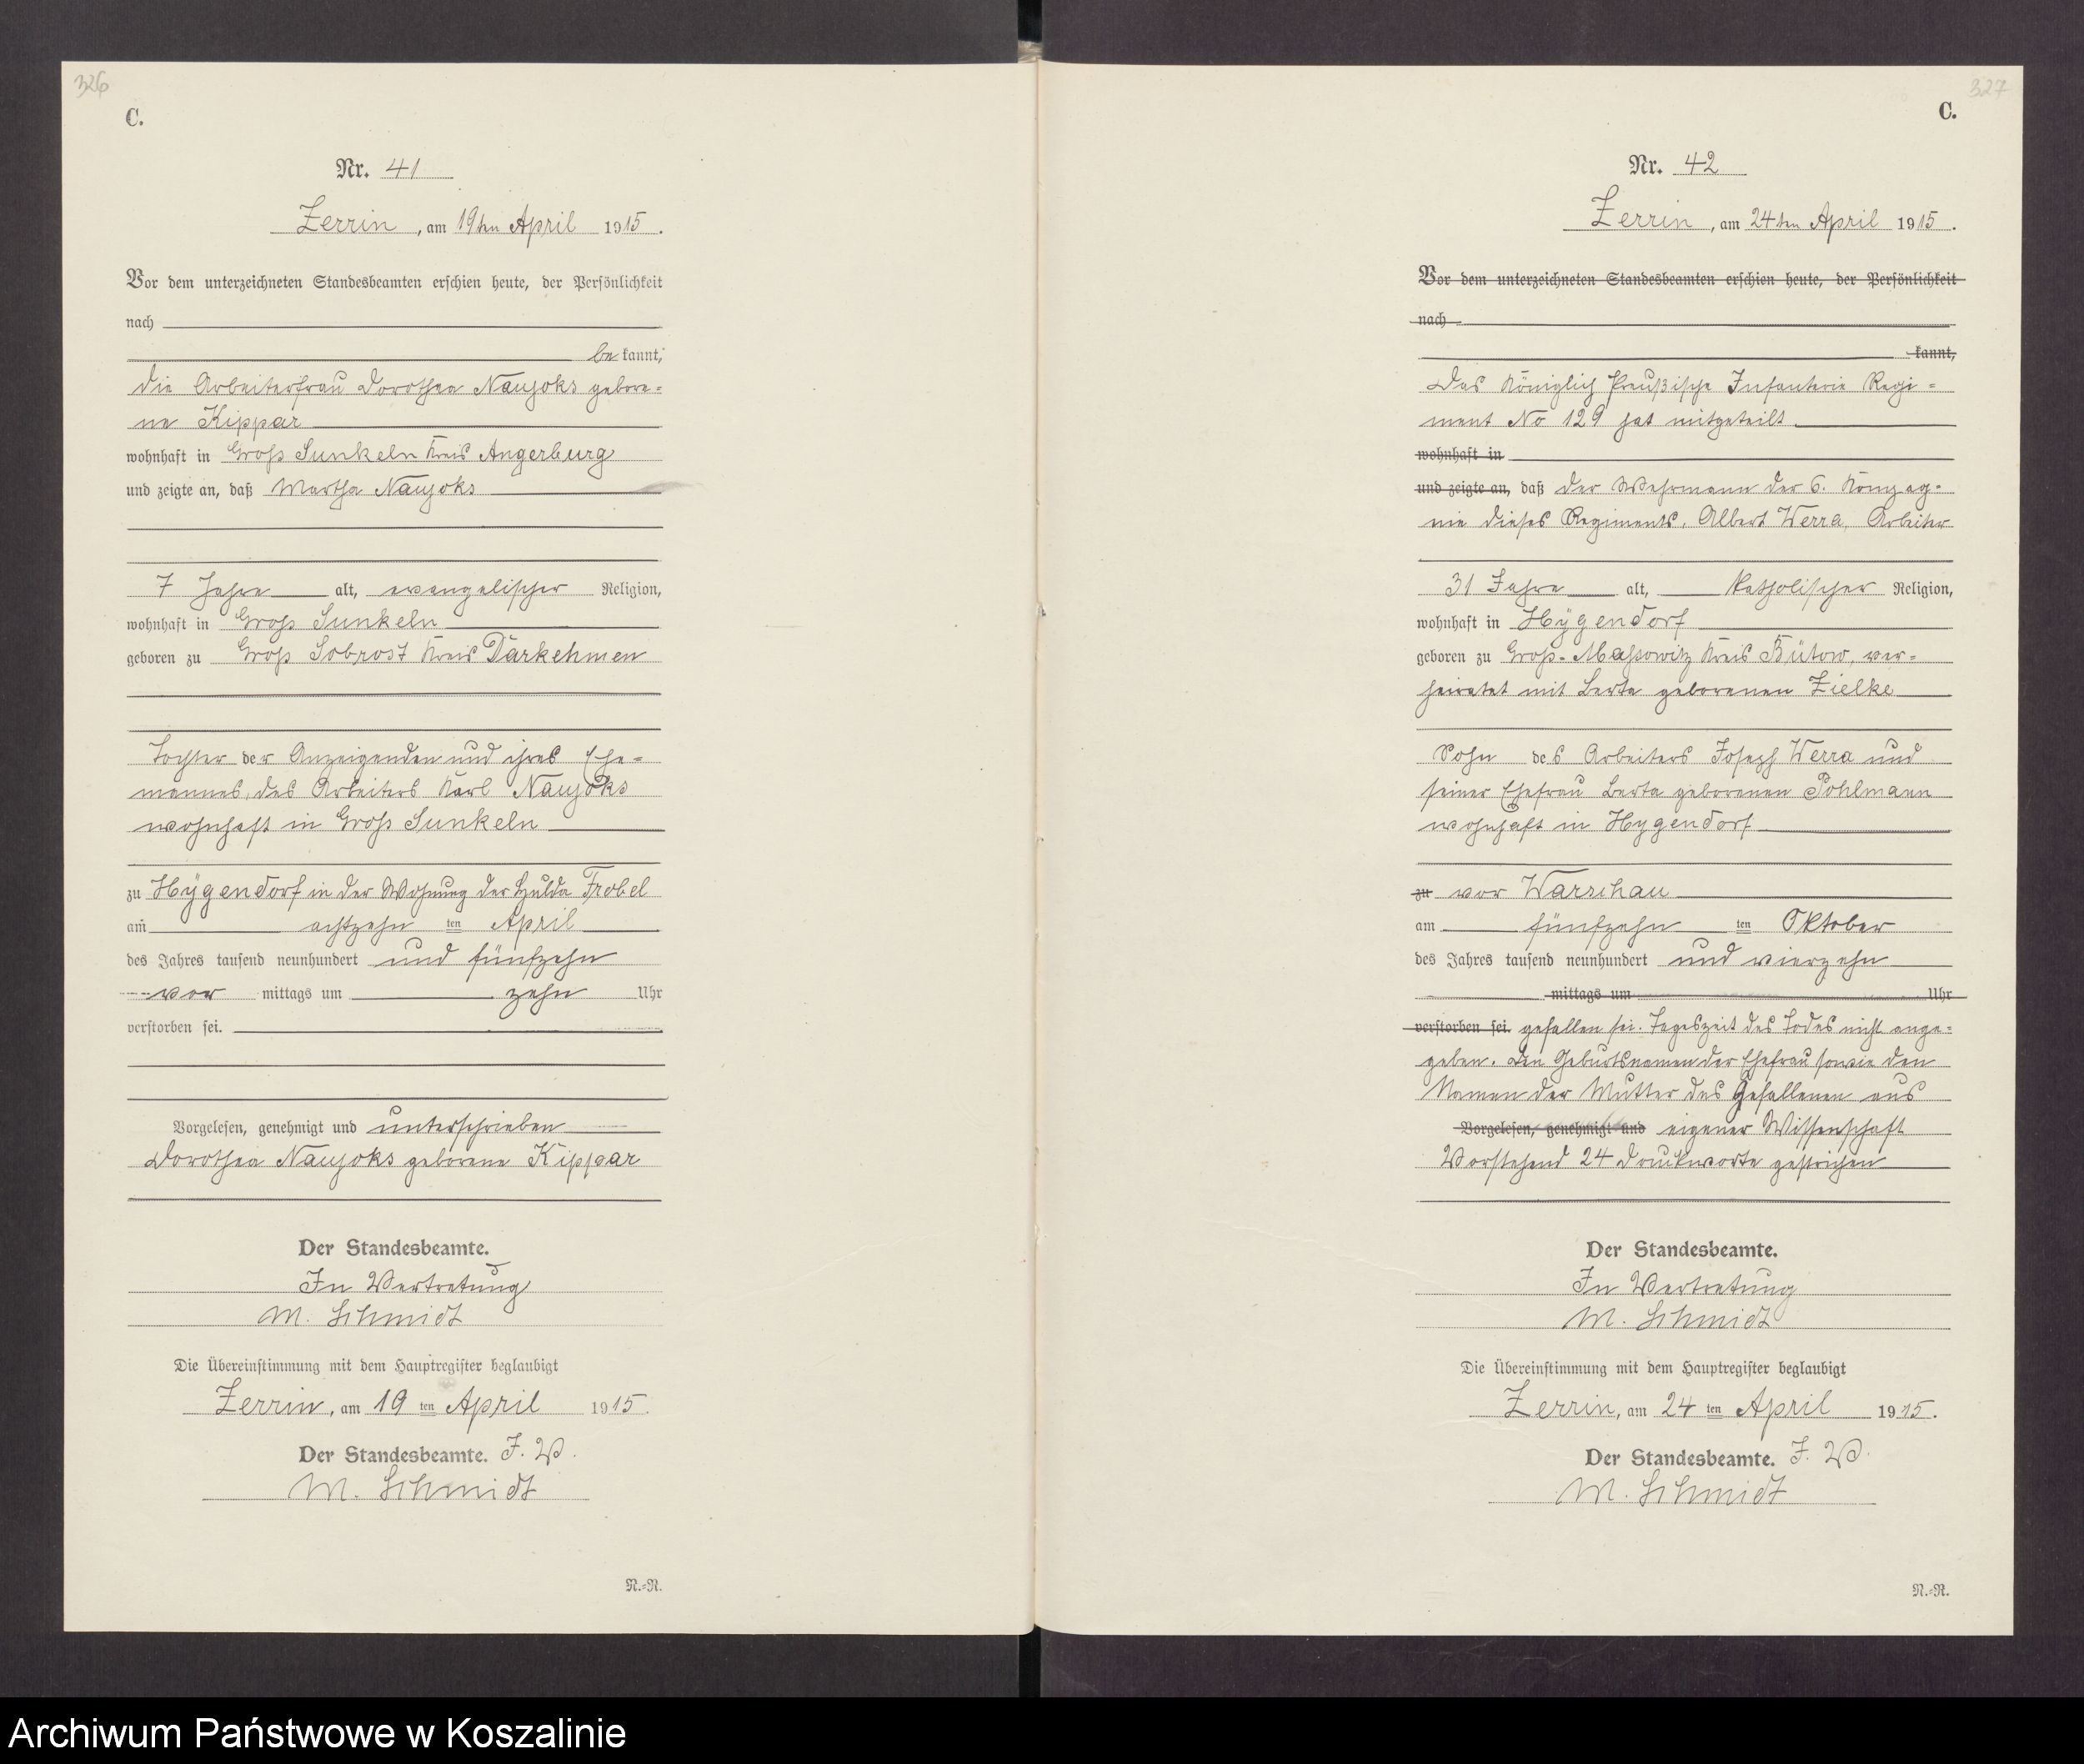 326
C.
Nr. 41
Zerrin, am 19ten April 1915.
Vor dem unterzeichneten Standesbeamten erschien heute, der Persönlichkeit
nach
bekannt,
die Arbeiterfrau Dorothea Naujoks gebore=
ne Kippar
wohnhaft in Groß Sunkeln Kreis Angerburg
und zeigte an, daß Martha Naujoks
7 Jahre alt, evangelischer Religion,
wohnhaft in Groß Sunkeln
geboren zu Groß Sobrost Kreis Darkehmen
Tochter der Anzeigenden und ihres Ehe=
mannes, des Arbeiters Karl Naujoks
wohnhaft in Groß Sunkeln
zu Hygendorf in der Wohnung der Hulda Frobel
am achtzehn ten April
des Jahres tausend neunhundert und fünfzehn
vor mittags um zehn Uhr
verstorben sei.
Vorgelesen, genehmigt und unterschrieben
Dorothea Naujoks geborene Kippar
Der Standesbeamte.
In Vertretung
M. Schmidt
Die Übereinstimmung mit dem Hauptregister beglaubigt
Zerrin, am 19 ten April 1915.
Der Standesbeamte. J. V.
M. Schmidt
N.=N.
327
C.
Nr. 42
Zerrin, am 24ten April 1915.
Vor dem unterzeichneten Standesbeamten erschien heute, der Persönlichkeit
nach
kannt,
Das Königlich Preußische Infanterie Regi=
ment No 129 hat mitgeteilt
wohnhaft in
und zeigte an, daß der Wehrmann der 6. Kompag=
nie dieses Regiments, Albert Werra, Arbeiter
31 Jahre alt, katholischer Religion,
wohnhaft in Hygendorf
geboren zu Groß-Massowitz Kreis Bütow, ver=
heiratet mit Berta geborenen Zielke
Sohn des Arbeiters Joseph Werra und
seiner Ehefrau Berta geborenen Pohlmann
wohnhaft in Hygendorf
zu vor Warschau
am fünfzehn ten Oktober
des Jahres tausend neunhundert und vierzehn
mittags um Uhr
verstorben sei. gefallen sei. Tageszeit des Todes nicht ange=
geben. Den Geburtsnamen der Ehefrau sowie den
Namen der Mutter des Gefallenen aus
Vorgelesen, genehmigt und eigener Wissenschaft
Vorstehend 24 Druckworte gestrichen
Der Standesbeamte.
In Vertretung
M. Schmidt
Die Übereinstimmung mit dem Hauptregister beglaubigt
Zerrin, am 24 ten April 1915.
Der Standesbeamte. J. V.
M. Schmidt
N.=N.
Archiwum Państwowe w Koszalinie